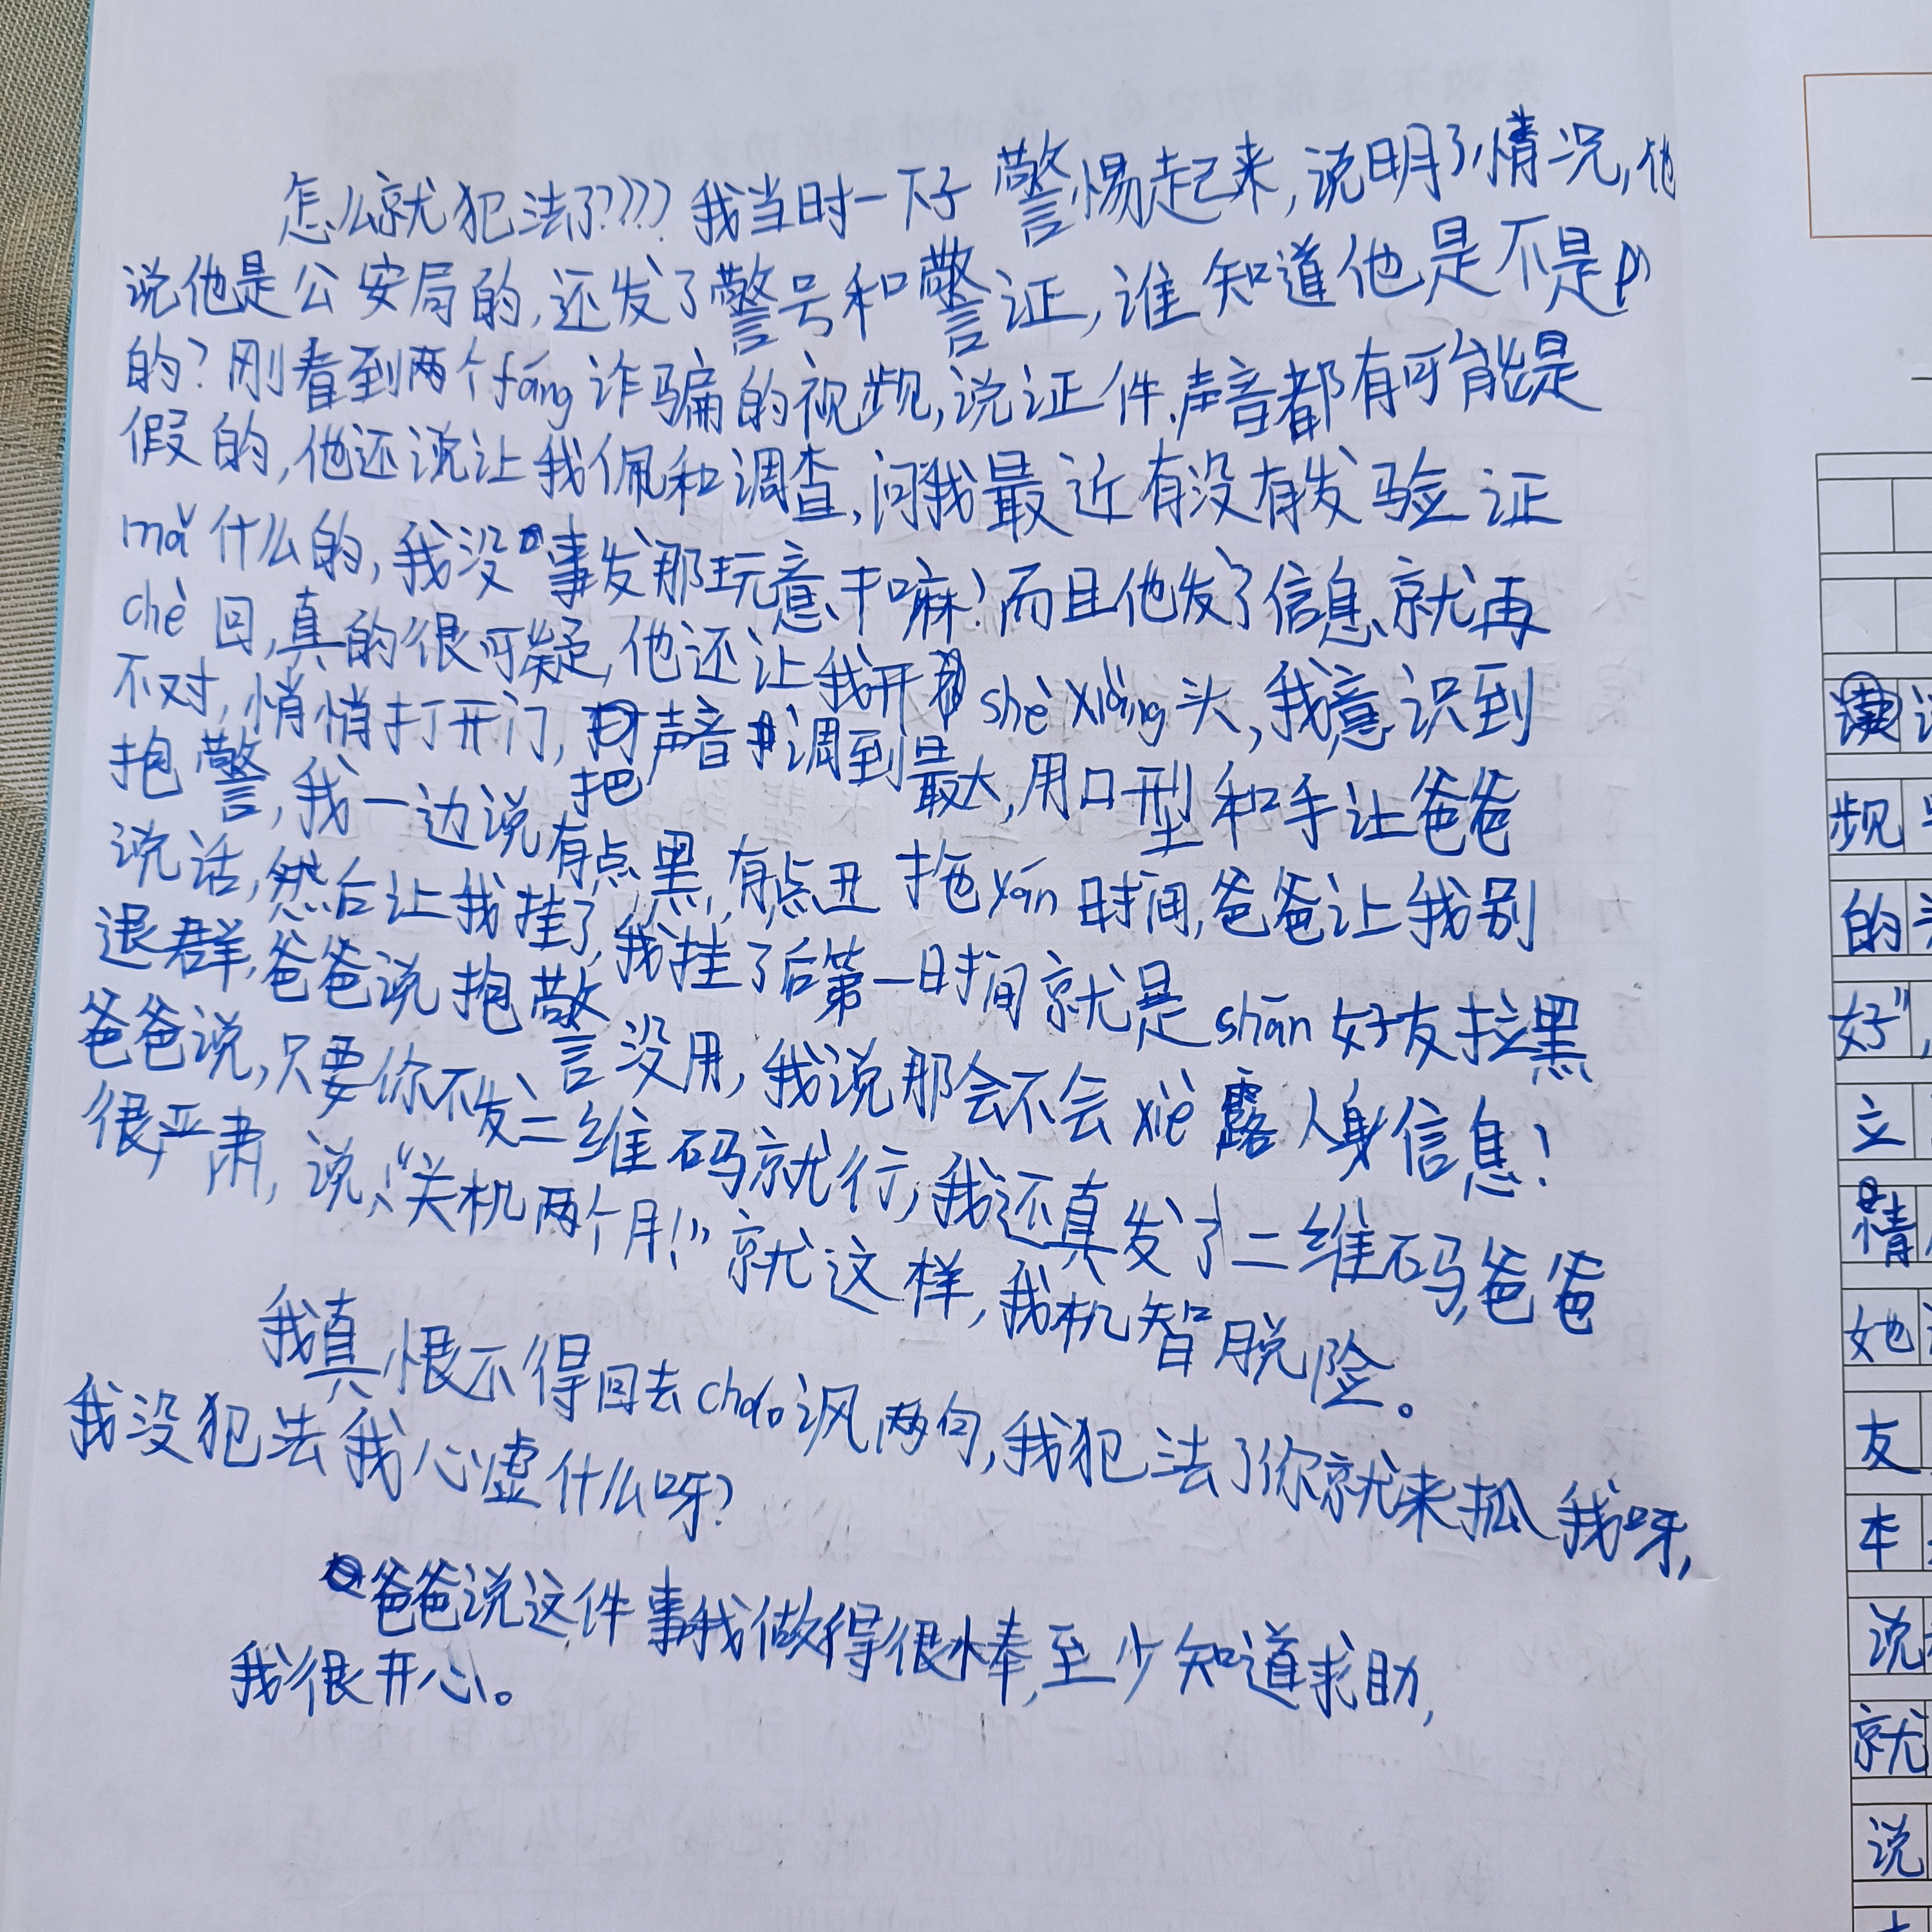 怎么就犯法了????我当时一下子警惕起来,说明了情况,他
说他是公安局的,还发了警号和警证,谁知道他是不是p)
的?刚看到两个fáng诈骗的视频,说证件、声音都有可能是
假的,他还说让我佩和调查,问我最近有没有发验证
mǎ什么的,我没事发那玩意干嘛?而且他发了信息就再
chè回,真的很可疑,他还让我开shè xiàng头,我意识到
不对,悄悄打开门,把声音调到最大,用口型和手让爸爸
抱警,我一边说有点黑,有点丑拖yán时间,爸爸让我别
说话,然后让我挂了,我挂了后第一时间就是shān好友拉黑
退群,爸爸说抱警没用,我说那会不会xiè露人身信息!
爸爸说,只要你不发二维码就行,我还真发了二维码,爸爸
很严肃,说:“关机两个月!”就这样,我机智脱险。
我真恨不得回去cháo讽两句,我犯法了你就来抓我呀,
我没犯法我心虚什么呀?
爸爸说这件事我做得很棒,至少知道求助,
我很开心。
读
频
的
好”,
立
情
她
友
本
说
就
说